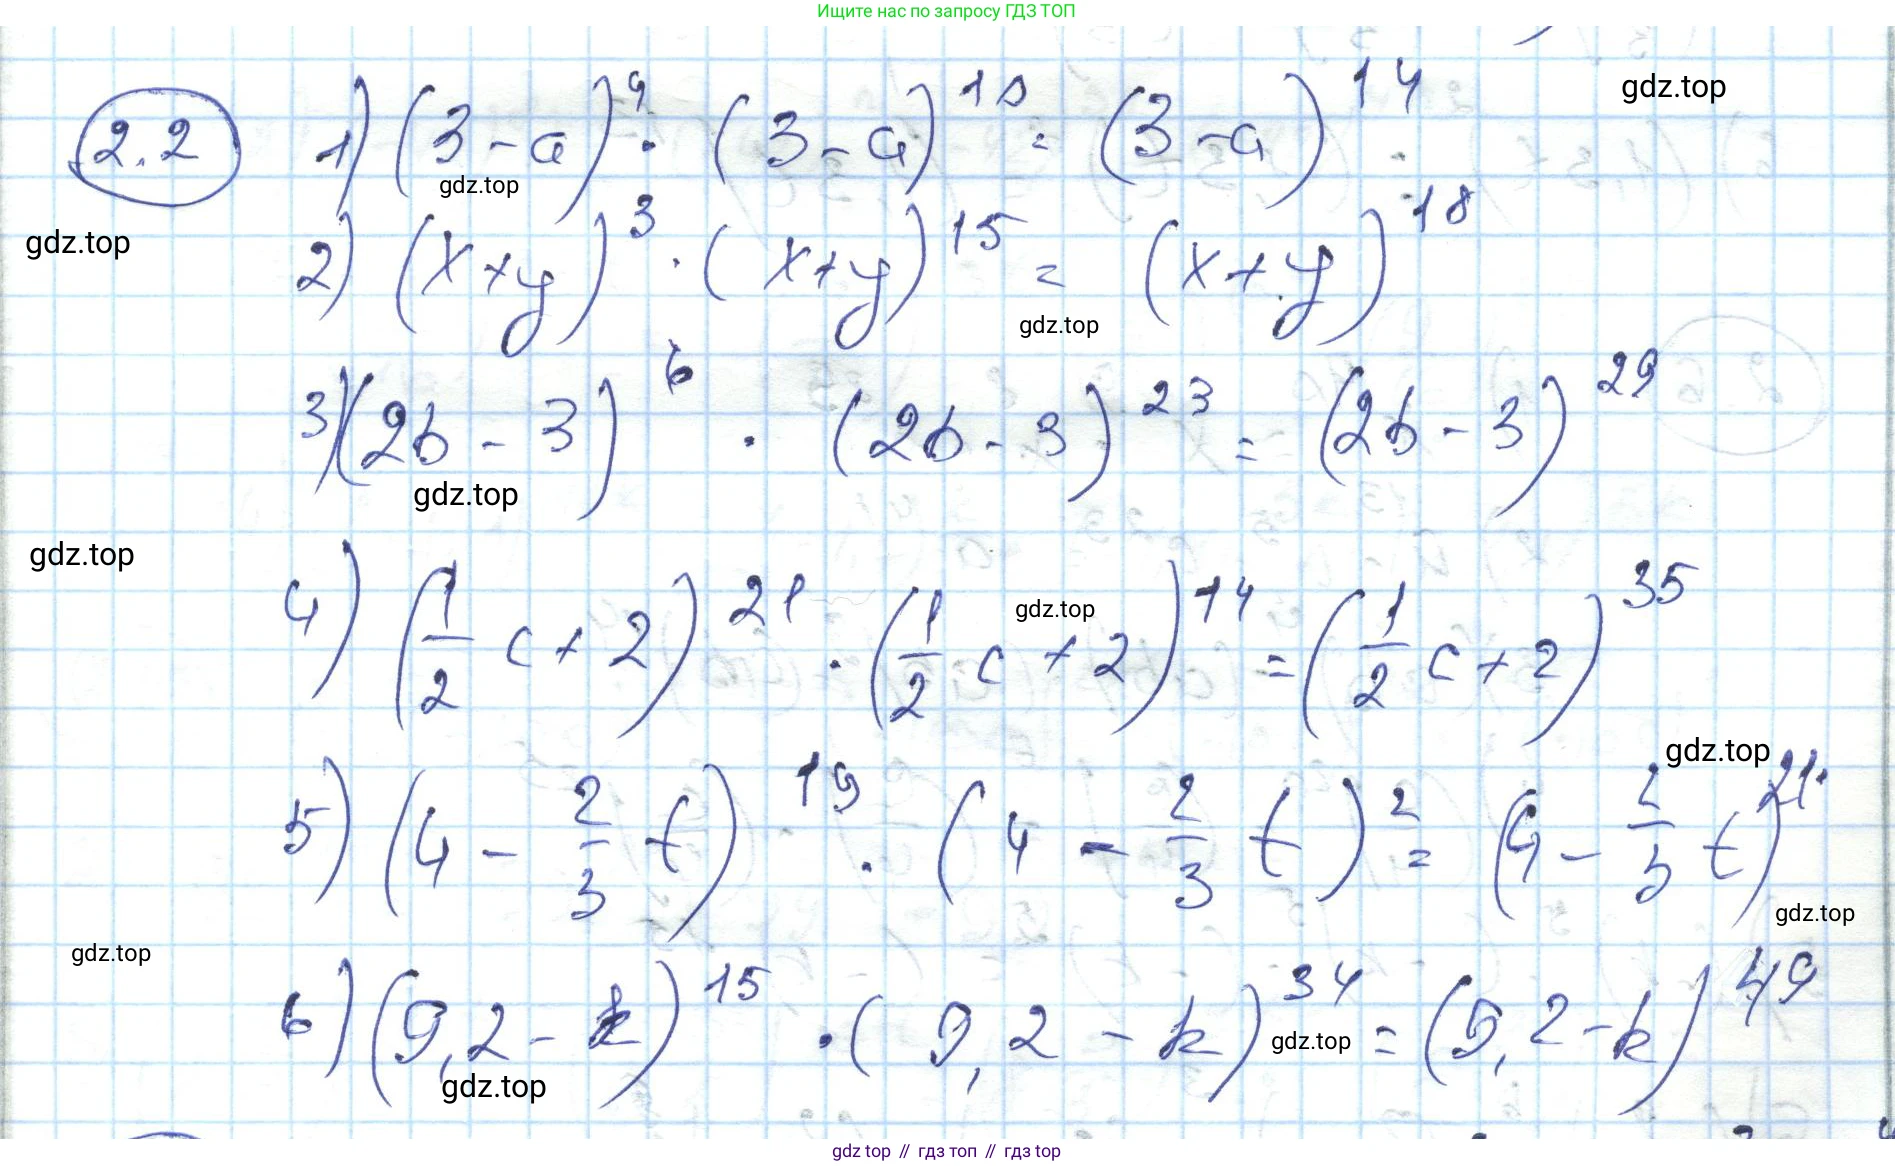 Ищите нас по запросу ГДЗ ТОП
2.2 1) (3-a)^4 · (3-a)^10 = (3-a)^14
gdz.top
gdz.top
gdz.top
2) (x+y)^3 · (x+y)^15 = (x+y)^18
gdz.top
3) (2b-3)^6 · (2b-3)^23 = (2b-3)^29
gdz.top
gdz.top
4) (1/2 c+2)^21 · (1/2 c+2)^14 = (1/2 c+2)^35
gdz.top
gdz.top
5) (4 - 2/3 t)^19 · (4 - 2/3 t)^2 = (4 - 2/3 t)^21
gdz.top
gdz.top
6) (9,2 - k)^15 · (9,2 - k)^34 = (9,2 - k)^49
gdz.top
gdz.top
gdz top // гдз топ // гдз top